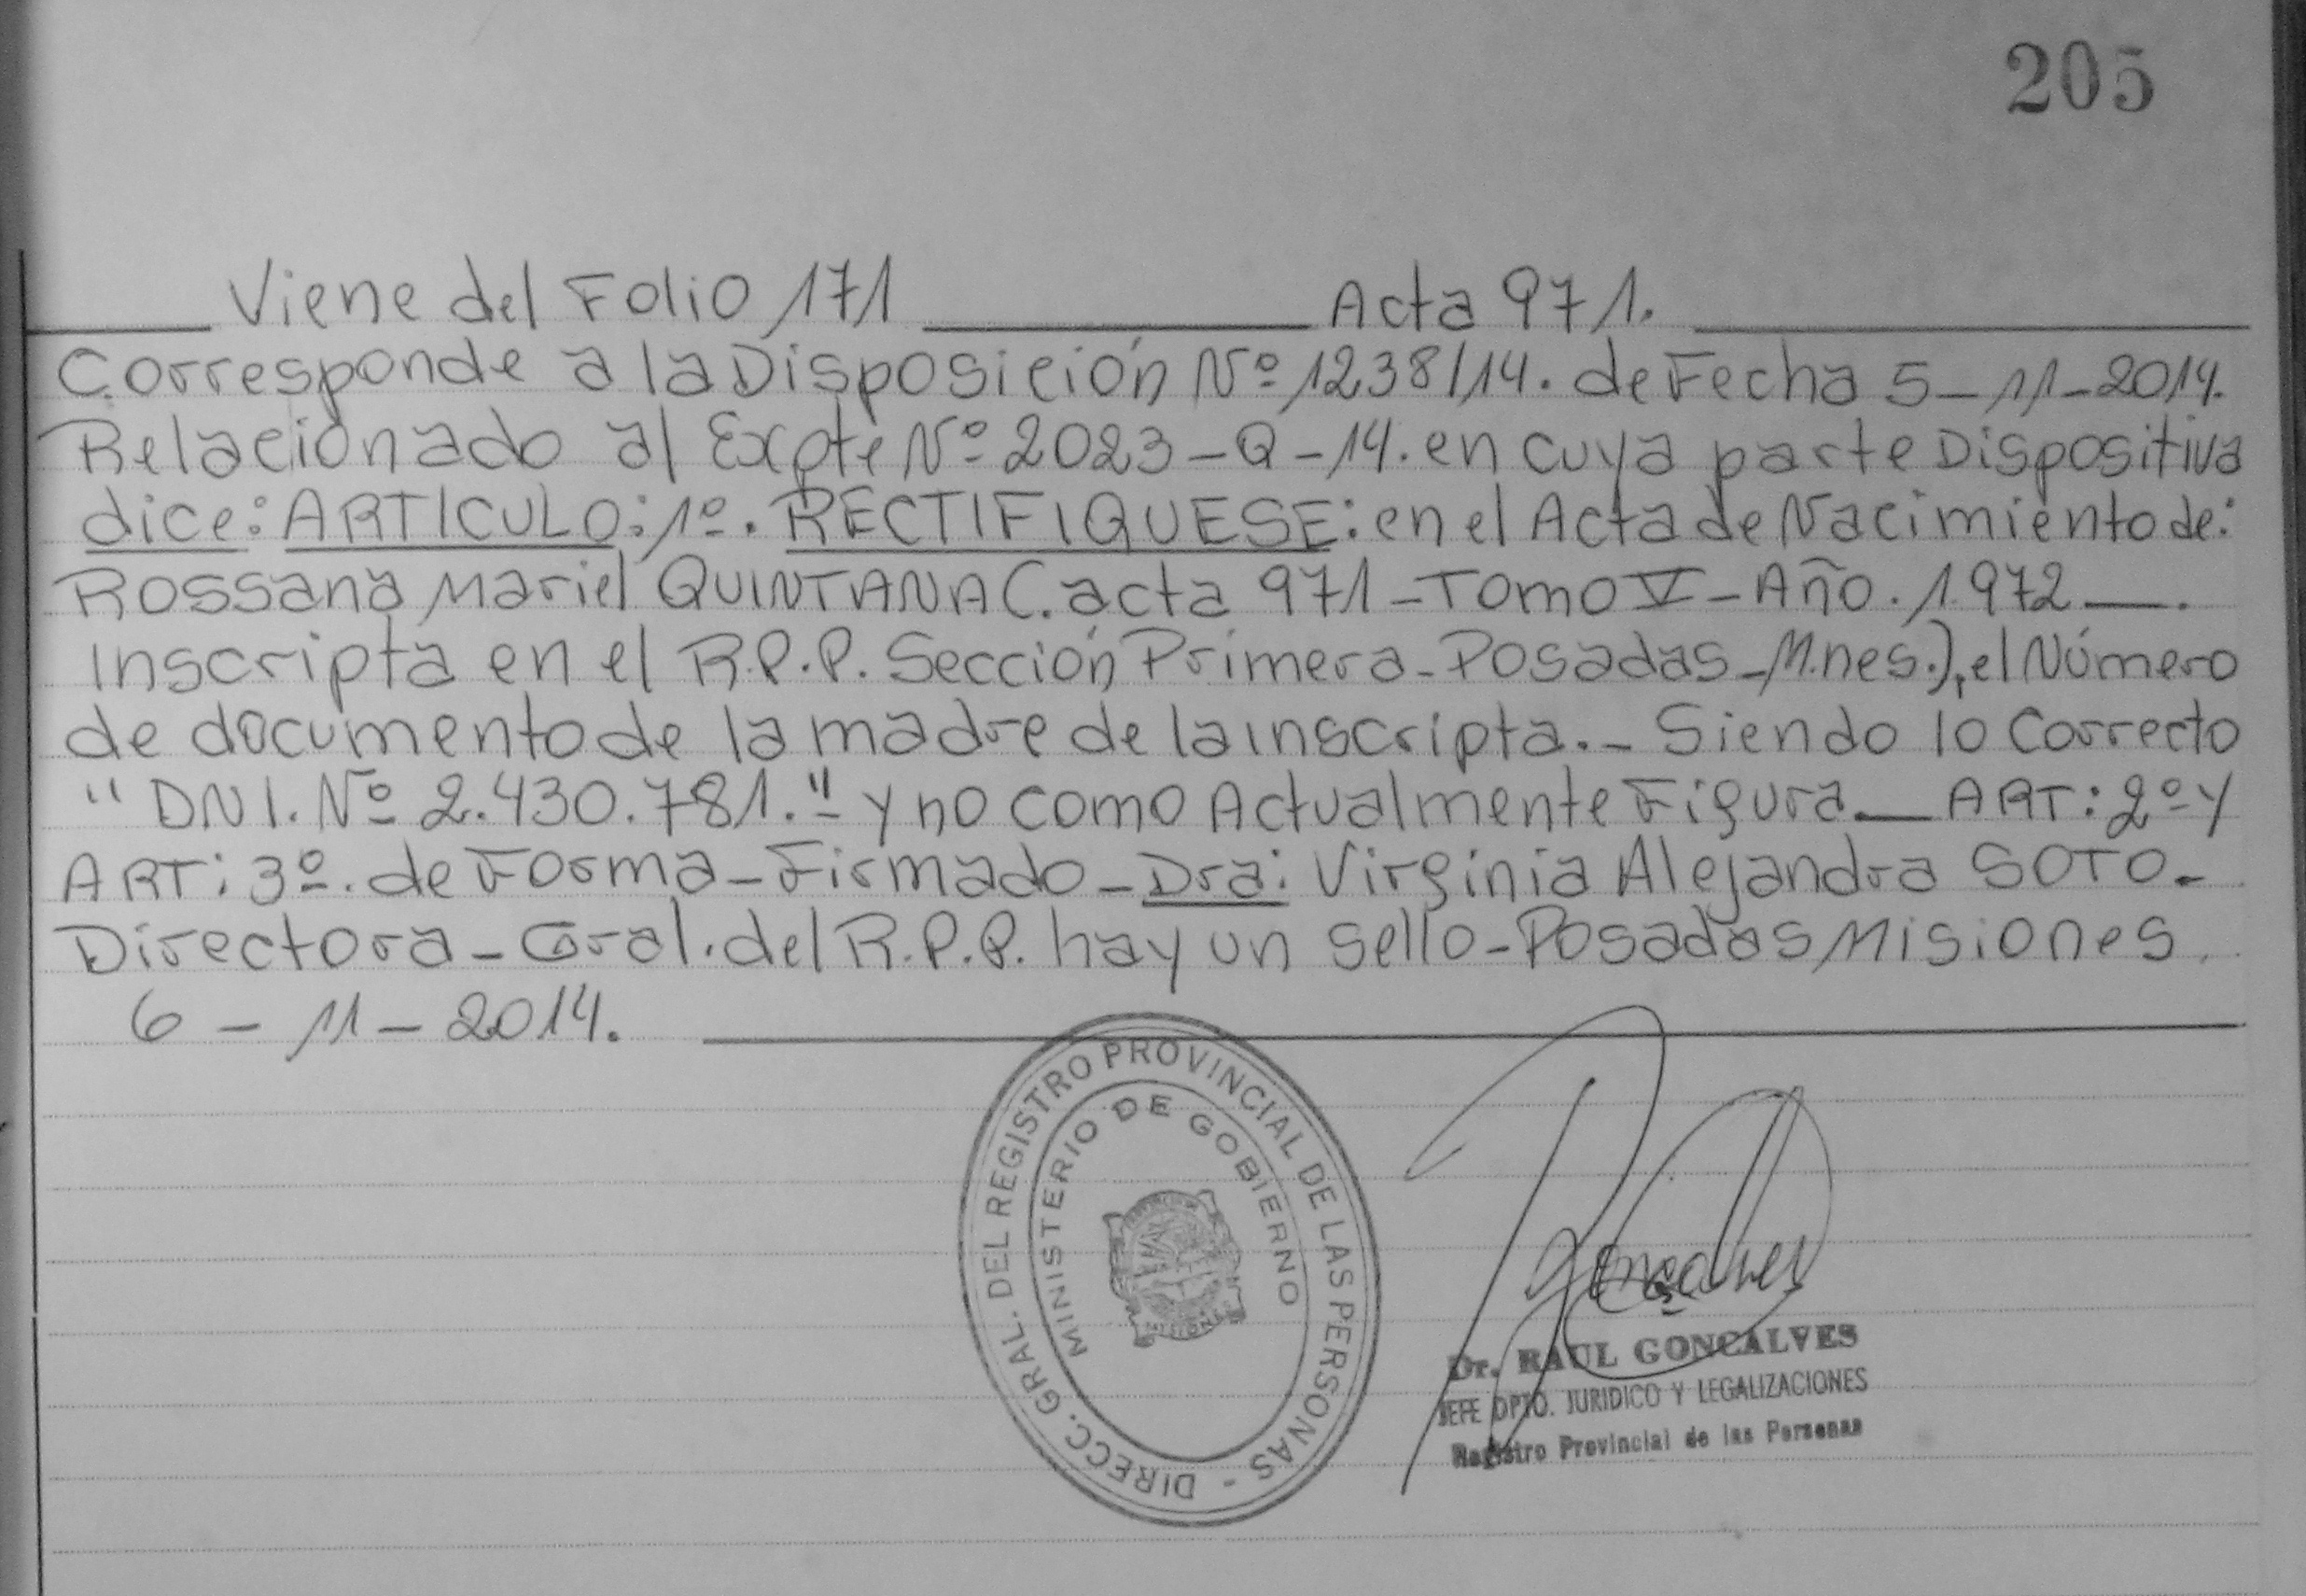 205
Viene del Folio 171 Acta 971.
Corresponde a la Disposición Nº 1238/14. de Fecha 5-11-2014.
Relacionado al Expte Nº 2023-Q-14. en cuya parte Dispositiva
dice: ARTICULO: 1º. RECTIFIQUESE: en el Acta de Nacimiento de:
Rossana Mariel QUINTANA (. acta 971 - Tomo V - Año. 1972 —.
Inscripta en el R.P.P. Sección Primera - Posadas - M.nes.), el Número
de documento de la madre de la inscripta.- Siendo lo Correcto
"DNI. Nº 2.430.781."- y no como Actualmente Figura.— ART: 2º y
ART: 3º. de Forma - Firmado - Dra: Virginia Alejandra SOTO.-
Directora - Gral. del R.P.P. hay un sello - Posadas Misiones.
6 - 11 - 2014.
DIRECC. GRAL. DEL REGISTRO PROVINCIAL DE LAS PERSONAS -
MINISTERIO DE GOBIERNO
Goncalves
Dr. RAUL GONCALVES
JEFE DPTO. JURIDICO Y LEGALIZACIONES
Registro Provincial de las Personas